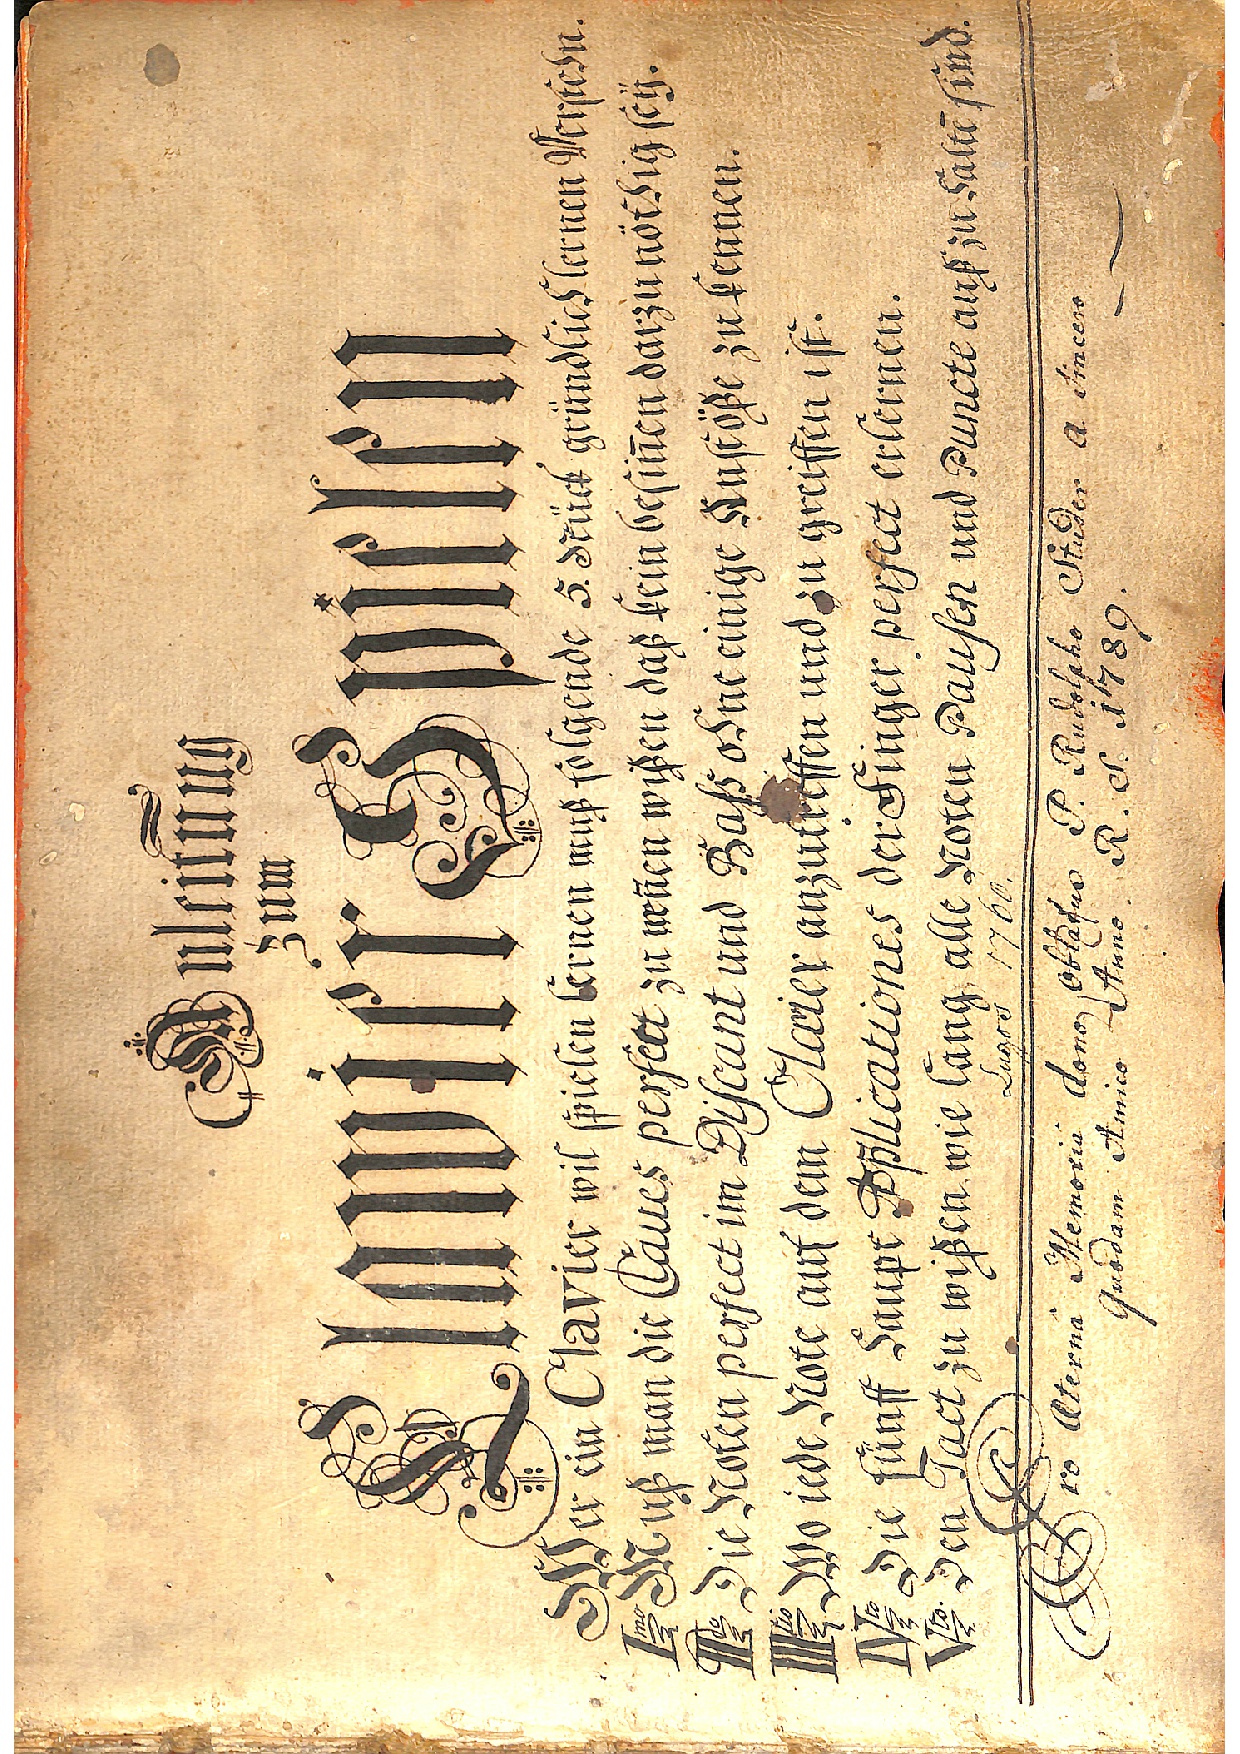 Anleitung
zum
Klavier Spielen
Wer ein Clavier wil spielen lernen muß folgende 5. Stück gründlich lernen Verstehn.
I.mo Muß man die Claves perfect zu neñen wißen daß kein besiñen darzu nöthig seÿ.
II.do Die Noten perfect im Discant und Baß ohne einige Anstöße zu kennen.
III.tio Wo iede Note auf dem Clavier anzutreffen und zu greiffen ist.
IV.to Die fünff Haupt Applicationes der Finger perfect erlernen.
V.to. Den Tact zu wißen, wie lang alle Noten Pausen und Puncte auß zu halte̅ sind.
1760.
Pro Aeterna Memoria dono oblatus P. Rudolpho Studer a sincero
quodam Amico Anno R. S. 1789.